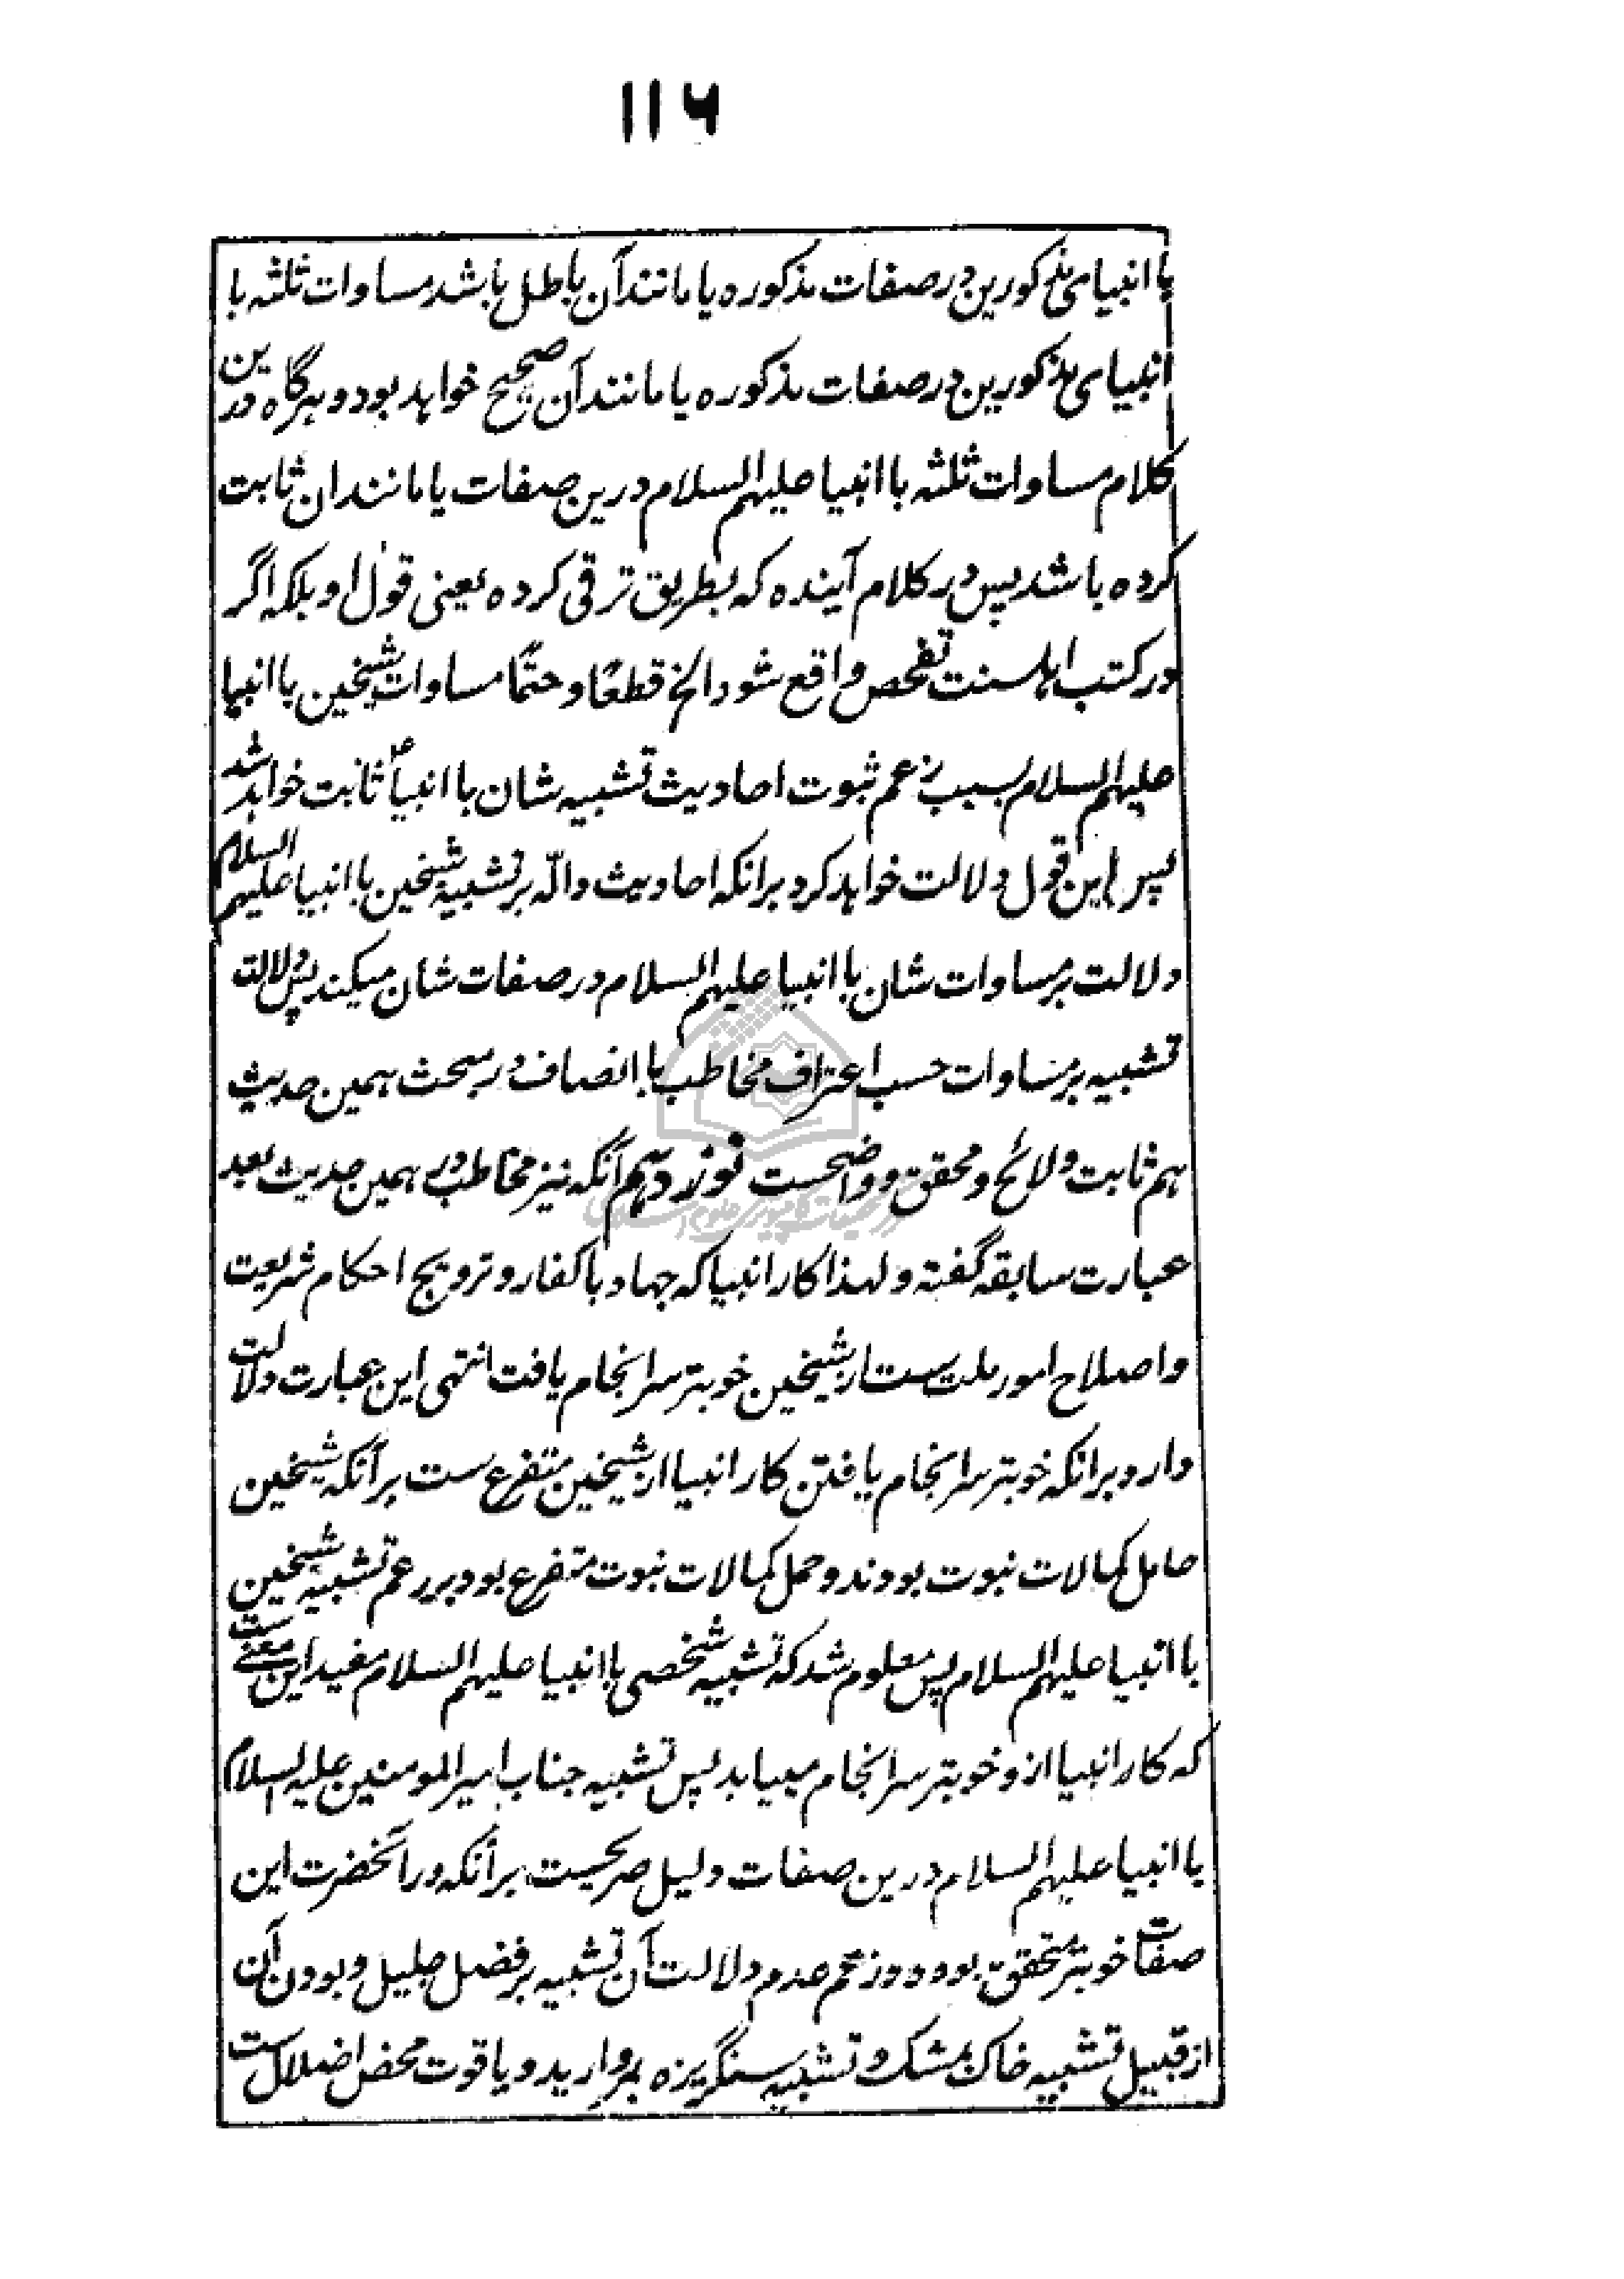 ۱۱۶
با انبیای مذکورین در صفات مذکوره یا مانند آن باطل باشد مساوات ثلثه با
انبیای مذکورین در صفات مذکوره یا مانند آن صحیح خواهد بود و هرگاه درین
کلام مساوات ثلثه با انبیا علیهم السلام درین صفات یا مانند ان ثابت
کرده باشد پس در کلام آینده که بطریق ترقی کرده یعنی قول او بلکه اگر
در کتب اهلسنت تفحص واقع شود الخ قطعًا و حتمًا مساوات شیخین با انبیا
علیهم السلام بسبب زعم ثبوت احادیث تشبیه شان با انبیاؑ ثابت خواهد شد
پس این قول دلالت خواهد کرد برانکه احادیث دالّه بر تشبیه شیخین با انبیا علیهم السلام
دلالت بر مساوات شان با انبیا علیهم السلام در صفات شان میکند پس دلالت
تشبیه بر مساوات حسب اعتراف مخاطب با انصاف در بحث همین حدیث
هم ثابت و لائح و محقق و واضحست نوزدهم آنکه نیز مخاطب در همین حدیث بعد
عبارت سابقه گفته و لهذا کار انبیا که جهاد با کفار و ترویج احکام شریعت
و اصلاح امور ملت ست از شیخین خوبتر سرانجام یافت انتهی این عبارت دلالت
دارد برانکه خوبتر سرانجام یافتن کار انبیا از شیخین متفرع ست بر آنکه شیخین
حامل کمالات نبوت بودند و حمل کمالات نبوت متفرع بود بر زعم تشبیه شیخین
با انبیا علیهم السلام پس معلوم شد که تشبیه شخصی با انبیا علیهم السلام مفید این معنی ست
که کار انبیا ازو خوبتر سرانجام مییابد پس تشبیه جناب امیر المومنین علیه السلام
با انبیا علیهم السلام درین صفات دلیل صریحست بر آنکه در آنحضرت این
صفات خوبتر متحقق بوده و زعم عدم دلالت آن تشبیه بر فضل جلیل و بودن آن
از قبیل تشبیه خاک بمشک و تشبیه سنگریزه بمروارید و یاقوت محض اضلال ست